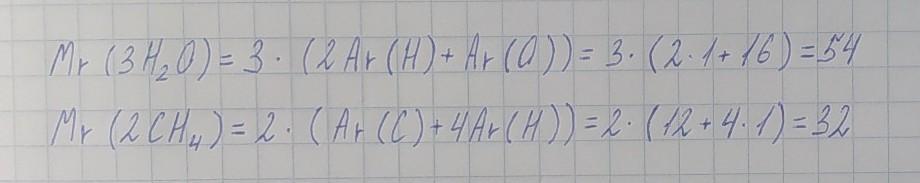 Mr (3H₂O) = 3 · (2Ar(H) + Ar(O)) = 3 · (2·1 + 16) = 54
Mr (2CH₄) = 2 · (Ar(C) + 4Ar(H)) = 2 · (12 + 4·1) = 32